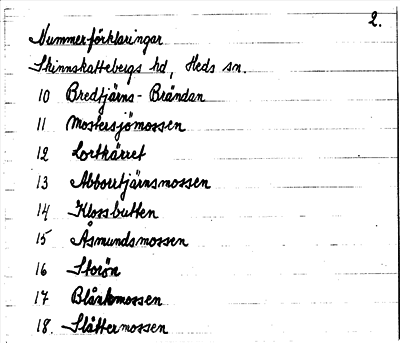 2.
Nummerförklaringar
Skinnskattebergs hd, Heds sn.
10 Bredtjärns-Brändan
11 Mostersjömossen
12 Lortkärret
13 Abborrtjärnsmossen
14 Klossbutten
15 Åsmundsmossen
16 Storön
17 Blårkmossen
18. Slåttermossen